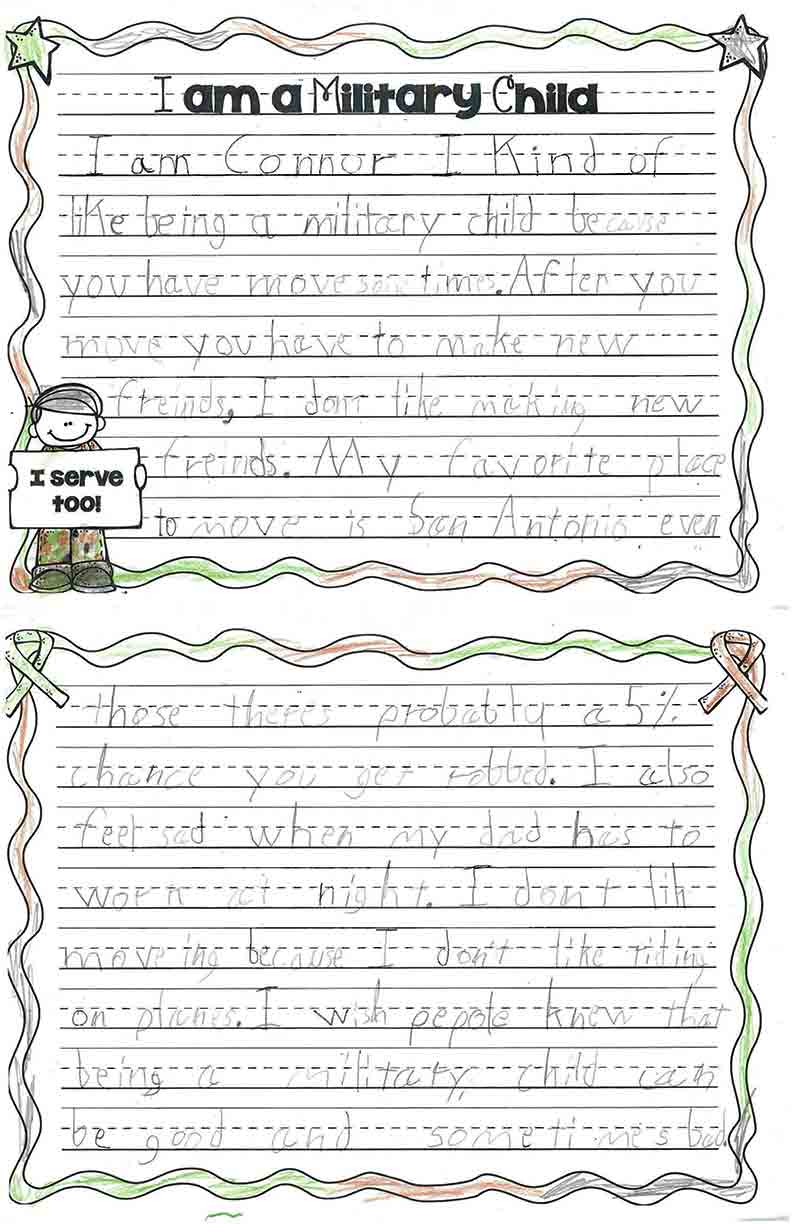 I am a Military Child
I am Connor I Kind of
like being a military child because
you have move some times. After you
move you have to make new
freinds, I dont like making new
freinds. My favorite place
I serve
too!
to move is San Antonio even
those theres probably a 5%
chance you get robbed. I also
feel sad when my dad has to
work at night. I don't lik
moveing because I don't like riding
on planes. I wish pepole knew that
being a military child can
be good and sometimes bad